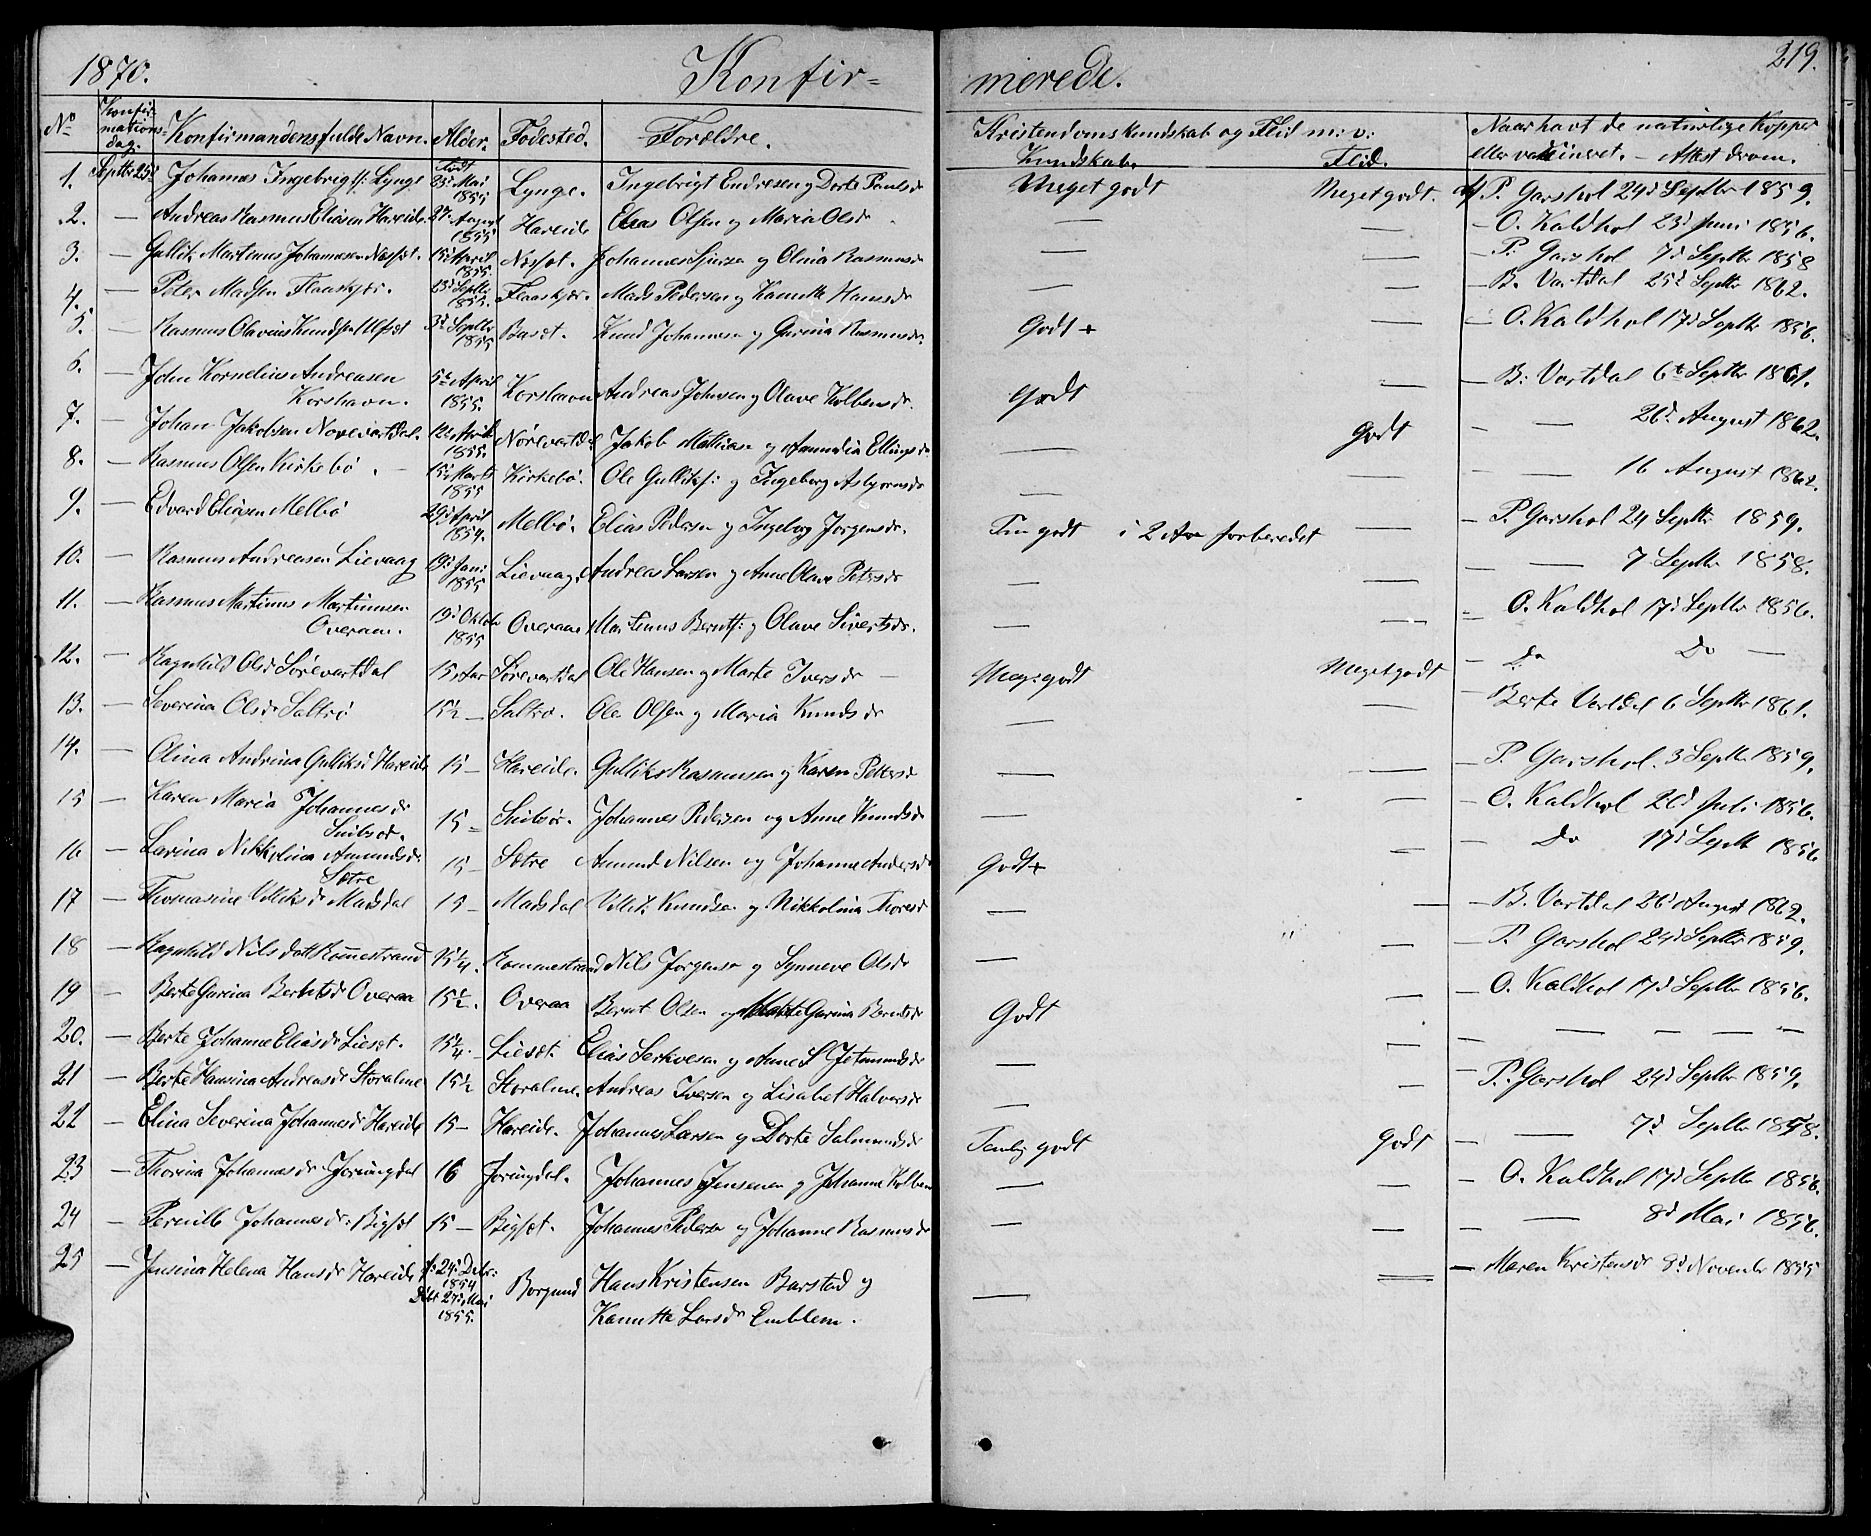 1870. Konfir= merede. 219.
No Konfir-mations=dag. Konfirmandens fulde Navn. Alder. Fødested. Forældre. Kristendomskundskab og Flid m: v: Naar havt de naturlige Kopper
Kundskab. Flid. eller vakcineret. - Attest derom.
1. Septbr 25d Johannes Ingebrigts: Lynge Født 23d Mai 1855 Lynge. Ingebrigt Endresen og Dorte Paulsdr Meget godt Meget godt. af P. Garshol 24d Septbr 1859.
2. — Andreas Rasmus Eliasen Hareide 27d August 1855 Hareide Elias Olsen og Maria Olsdr — — — O. Kaldhol 23d Juni 1856.
3. — Gullik Martinus Johannesen Næsset. 15d April 1855. Næsset. Johannes Sjursen og Olina Rasmusdr — — — P. Garshol 7d Septbr 1858
4. — Peter Madsen Flaaskjær. 23d Septbr 1855. Flaaskjær. Mads Pedersen og Hansdr — — — B. Vartdal 25d Septbr 1862.
5. — Rasmus Olavius Knuds: Ulfset 3d Septbr 1855 Knud Johannesen og Gurina Rasmusdr. Godt + — — O. Kaldhol 17d Septbr 1856.
6. — John Kornelius Andreasen Korshavn. 5te April 1855. Korshavn Andreas Johnsen og Olave Kolbensdr. Godt — — B: Vartdal 6te Septbr 1861.
7. — Johan Jakobsen Nørevartdal. 12te April 1855. Nørevartdal Jakob Mathiasen og Ellingsdr — Godt — — 26d August 1862.
8. — Rasmus Olsen Kirkebø. 15de Marts 1855 Kirkebø. Ole Gulliks: og Ingeborg Asbjørnsdr — — — — 16 August 1862.
9. — Edvard Eliasen Melbø 29d April 1854. Melbø. Elias Pedersen og Ingeborg Jørgensdr. godt i 2 Aar forberedet — — P. Garshol 24 Septbr 1859.
10. — Rasmus Andreasen Lievaag 19d Juni 1855 Lievaag. Andreas Larsen og Anne Olave Petersdr — — — — 7 Septbr 1858.
11. — Rasmus Martinus Martinusen Overaae. 19d Oktobr 1855 Overaae. Martinus Bernts: og Olave Sivertsdr. — — — O. Kaldhol 17d Septbr 1856.
12. — Ragnhild Olsdr Sørevartdal 15 Aar Sørevartdal Ole Hansen og Marte Iversdr — Meget godt Meget godt — Do Do —
13. — Severina Olsdr Saltrø 15½ — Saltrø. Ole Olsen og Maria Knudsdr — — — Berte Vartdal 6 Septbr 1861.
14. — Olina Andrina Gulliksd Hareide 15 — Hareide. Gullik Rasmussen og Karen Pettersdr — — — P. Garshol. 3 Septbr 1859.
15 — Karen Maria Johannesdr Snibsør. 15 — Snibsør. Johannes Pedersen og Anne Knudsdr — — — O. Kaldhol 20d Juli 1856.
16 — Larina Nikkolina Amundsdr Sætre 15 — Sætre Amund Nilsen og Johanne Andersdr Godt + — — Do 17d Septbr 1856
17 — Thomasine Villiksdr Madsdal 15 — Madsdal Villik Knudsen og Nikkolina Thoresdr — — — B. Vartdal 26d August 1862.
18 — Ragnhild Nilsdatt Rommestrand 15¼. Rommestrand Nils Jørgensen og Synneve Olsdr — — — P. Garshol 24d Septbr 1859.
19 — Berte Gurina Berntsdr Overaa 15½. Overaa Bernt Olsen og Marte Gurina Berntsdr Godt — — O. Kaldhol 17d Septbr 1856.
20. — Berte Johanne Eliasdr Liesæt. 15¼. Liesæt. Elias og Anne S Jetmundsdr — — — — — —
21 — Berte Hansina Andreasdr Storalme 15½ Storalme. Andreas Iversen og Lisabet Halvorsdr — — — P. Garshol 24d Septbr 1859.
22 — Elina Severina Johannesdr Hareide 15 — Hareide. Johannes Larsen og Dorte Salmundsdr Temlig godt Godt — — 7d Septbr 1858.
23 — Thorina Johannesdr Jøringdal 16 Jøringdal. Johannes Jensenen og Johanne Kolbens — — — O. Kaldhol 17d Septbr 1856.
24 — Pernille Johannesdr: Bigset 15 — Bigset. Johannes Pedersen og Johanne Rasmusdr — — — — 8d Mai 1856.
25 — Jensina Helena Hansdr Hareide f: 24d Decbr: 1854 Døbt 27d Mai 1855. Borgund Hans Kristensen Barstad og — — — Maren Kristensdr 8d Novembr 1855
Larsdr Emblem.